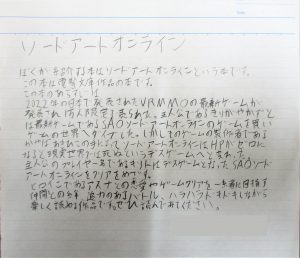 ソードアートオンライン
ぼくが紹介する本はソードアートオンラインという本です。
この本は電撃文庫作品の本です。
この本のあらすじは
2022年の日本で発売されたVRMMOの最新ゲームが
発売され 1万人限定で売られる。主人公であるきりがやかずとは
最新ゲームであるSAOソードアートオンラインのゲームを買い
ゲームの世界へダイブした。しかしそのゲームの製作者である
かやばあきひこの手によってソードアートオンラインはHPがゼロに
なると現実世界でも死ぬというデスゲームへとなれた。
主人公のプレイヤー名であるキリトはデスゲームとなったSAOソード
アートオンラインをクリアをめざす。
ヒロインであるアスナとの恋愛やゲームクリアを一緒に目指す
仲間との絆 迫力のあるバトル、ハラハラドキドキしながら
楽しく読める作品です。ぜひ読んでみてください。